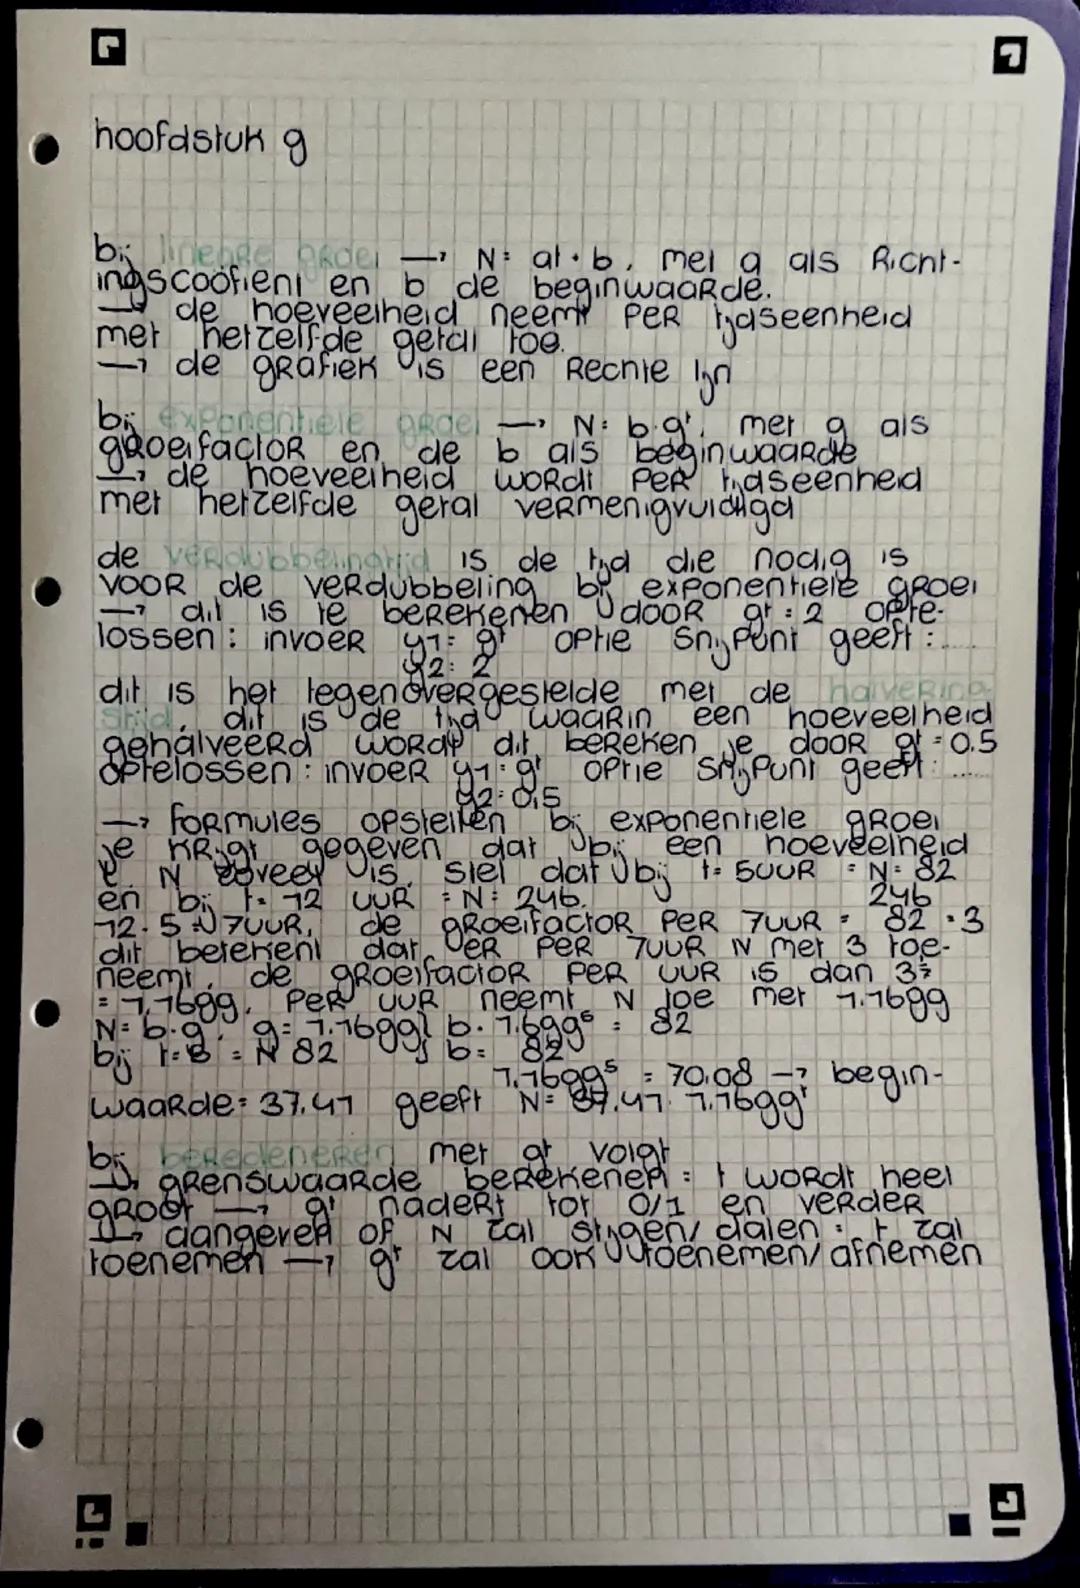 hoofdstuk 9
bij lineaRe gRoei → N = at + b, met a als Richt-
ingscoöfient en b de beginwaaRde.
→ de hoeveelheid neemt PER tijdseenheid
met hetzelfde getal toe.
→ de gRafiek is een Rechte lijn
bij exponentiele gRoei → N = b·gᵗ, met g als
gRoeifactoR en de b als beginwaaRde
→ de hoeveelheid woRdt PeR tijdseenheid
met hetzelfde getal veRmenigvuldigd
de veRdubbelingtijd is de tijd die nodig is
vooR de veRdubbeling bij exponentiele gRoei
→ dit is te beRekenen dooR gᵗ = 2 opte-
lossen : invoeR y1 = gᵗ optie Snijpunt geeft : ......
y2 = 2
dit is het tegenoveRgestelde met de halveRing
stijd, dit is de tijd waaRin een hoeveelheid
gehalveeRd woRdt dit beReken je dooR gᵗ = 0.5
optelossen : invoeR y1 = gᵗ optie Snijpunt geeft : ......
y2 = 0,5
→ foRmules opstellen bij exponentiele gRoei
je kRijgt gegeven dat bij een hoeveelheid
N zoveel is. Stel dat bij t = 5 uuR = N = 82
en bij t = 12 uuR = N = 246. 246
12 - 5 = 7 uuR, de gRoeifactoR PeR 7 uuR = 82 = 3
dit betekent dat eR PeR 7 uuR N met 3 toe-
neemt, de gRoeifactoR PeR uuR is dan 3
= 1,1699, PeR uuR neemt N toe met 1.1699
N = b·g, g = 1.1699 b · 1.699⁵ = 82
bij t = = N 82 b = 82
1,1699⁵ = 70.08 → begin-
waaRde = 37.41 geeft N = 37.41 · 1.1699ᵗ
bij beRedeneRen met gᵗ volgt
→ gRenswaaRde beRekenen = t woRdt heel
gRoot → gᵗ nadeRt tot 0/1 en veRdeR
→ aangeven of N zal stijgen/ dalen : t zal
toenemen → gᵗ zal ook toenemen/afnemen